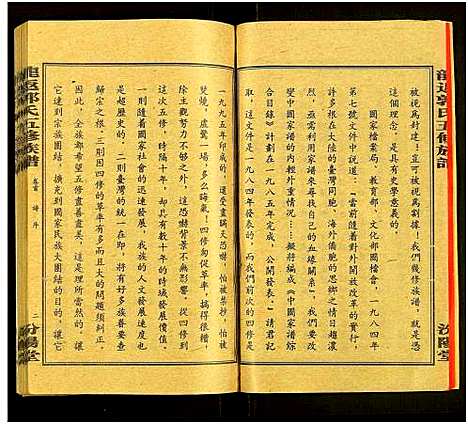 龍返郭氏五修族譜
汾陽堂
被視爲封建！宜可視爲割據！我們幾修族譜，就是
這個理念，是具有史學意義的。
國家檔案局、教育部、文化部國檔會，一九八四年
第七號文件中說道：「當前隨着對外開放改革的實行，
許多根在大陸的臺灣同胞、海外僑胞的思鄉之情日趨濃
烈，亟需利用家譜來尋找自己的血緣關系」，我們要改
變中國家譜的內輕外重情況……擬將編成《中國家譜綜
合目錄》計劃在一九八五年完成，公開發表。」請君記
取，這文件是一九八四年發表的，而我們前次的四修是
一九九五年印成的，還受盡瞞天恐嚇，怕被禁抄，怕被
焚燒，虛驚一場，多么晦氣！四修匆促草率，搞得很糟，
除主觀努力不够之外，這恐嚇背景不無影響。從四修到
這次五修，時隔十年，却只有數十年的時域發展價值。
一則隨着國家社會的迅速發展，我族的人文發展速度也
是超歷史的。二則在大一統、在即，將有好多族要查
歸宗之根。三則因四修的草率有多而且大的問題須糾正。
因此，全族都希望五修盡善盡美，是理所當然的。讓
它達到宗族大團結，擴充到國家民族大團結的目的。讓它
龍返郭氏五修族譜
卷首 譜序
二
汾陽堂